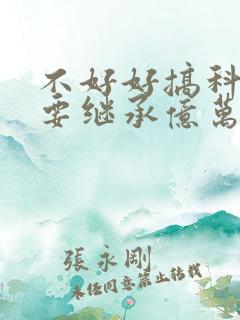 不好好搞科
要继承億萬
張永剛
未经同意禁止转载